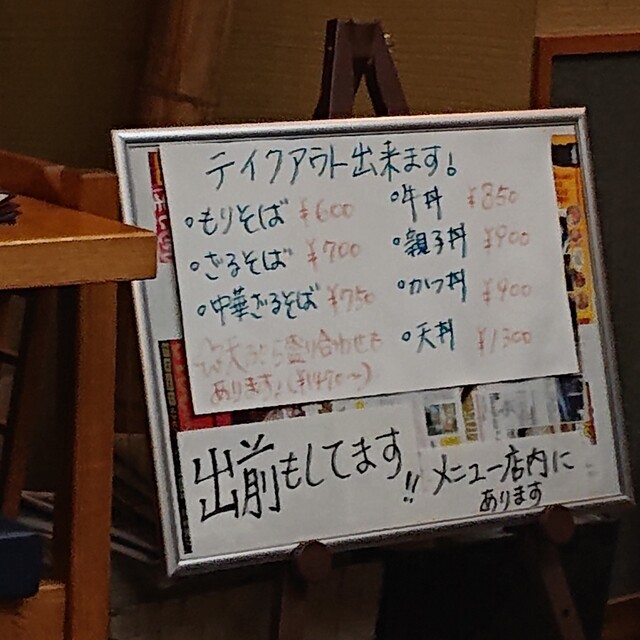 テイクアウト出来ます!
・もりそば ¥600
・ざるそば ¥700
・中華ざるそば ¥750
・牛丼 ¥850
・親子丼 ¥900
・かつ丼 ¥900
・天丼 ¥1300
☆天ぷら盛り合わせも
あります!(¥1490〜)
出前もしてます!!
メニュー店内に
あります